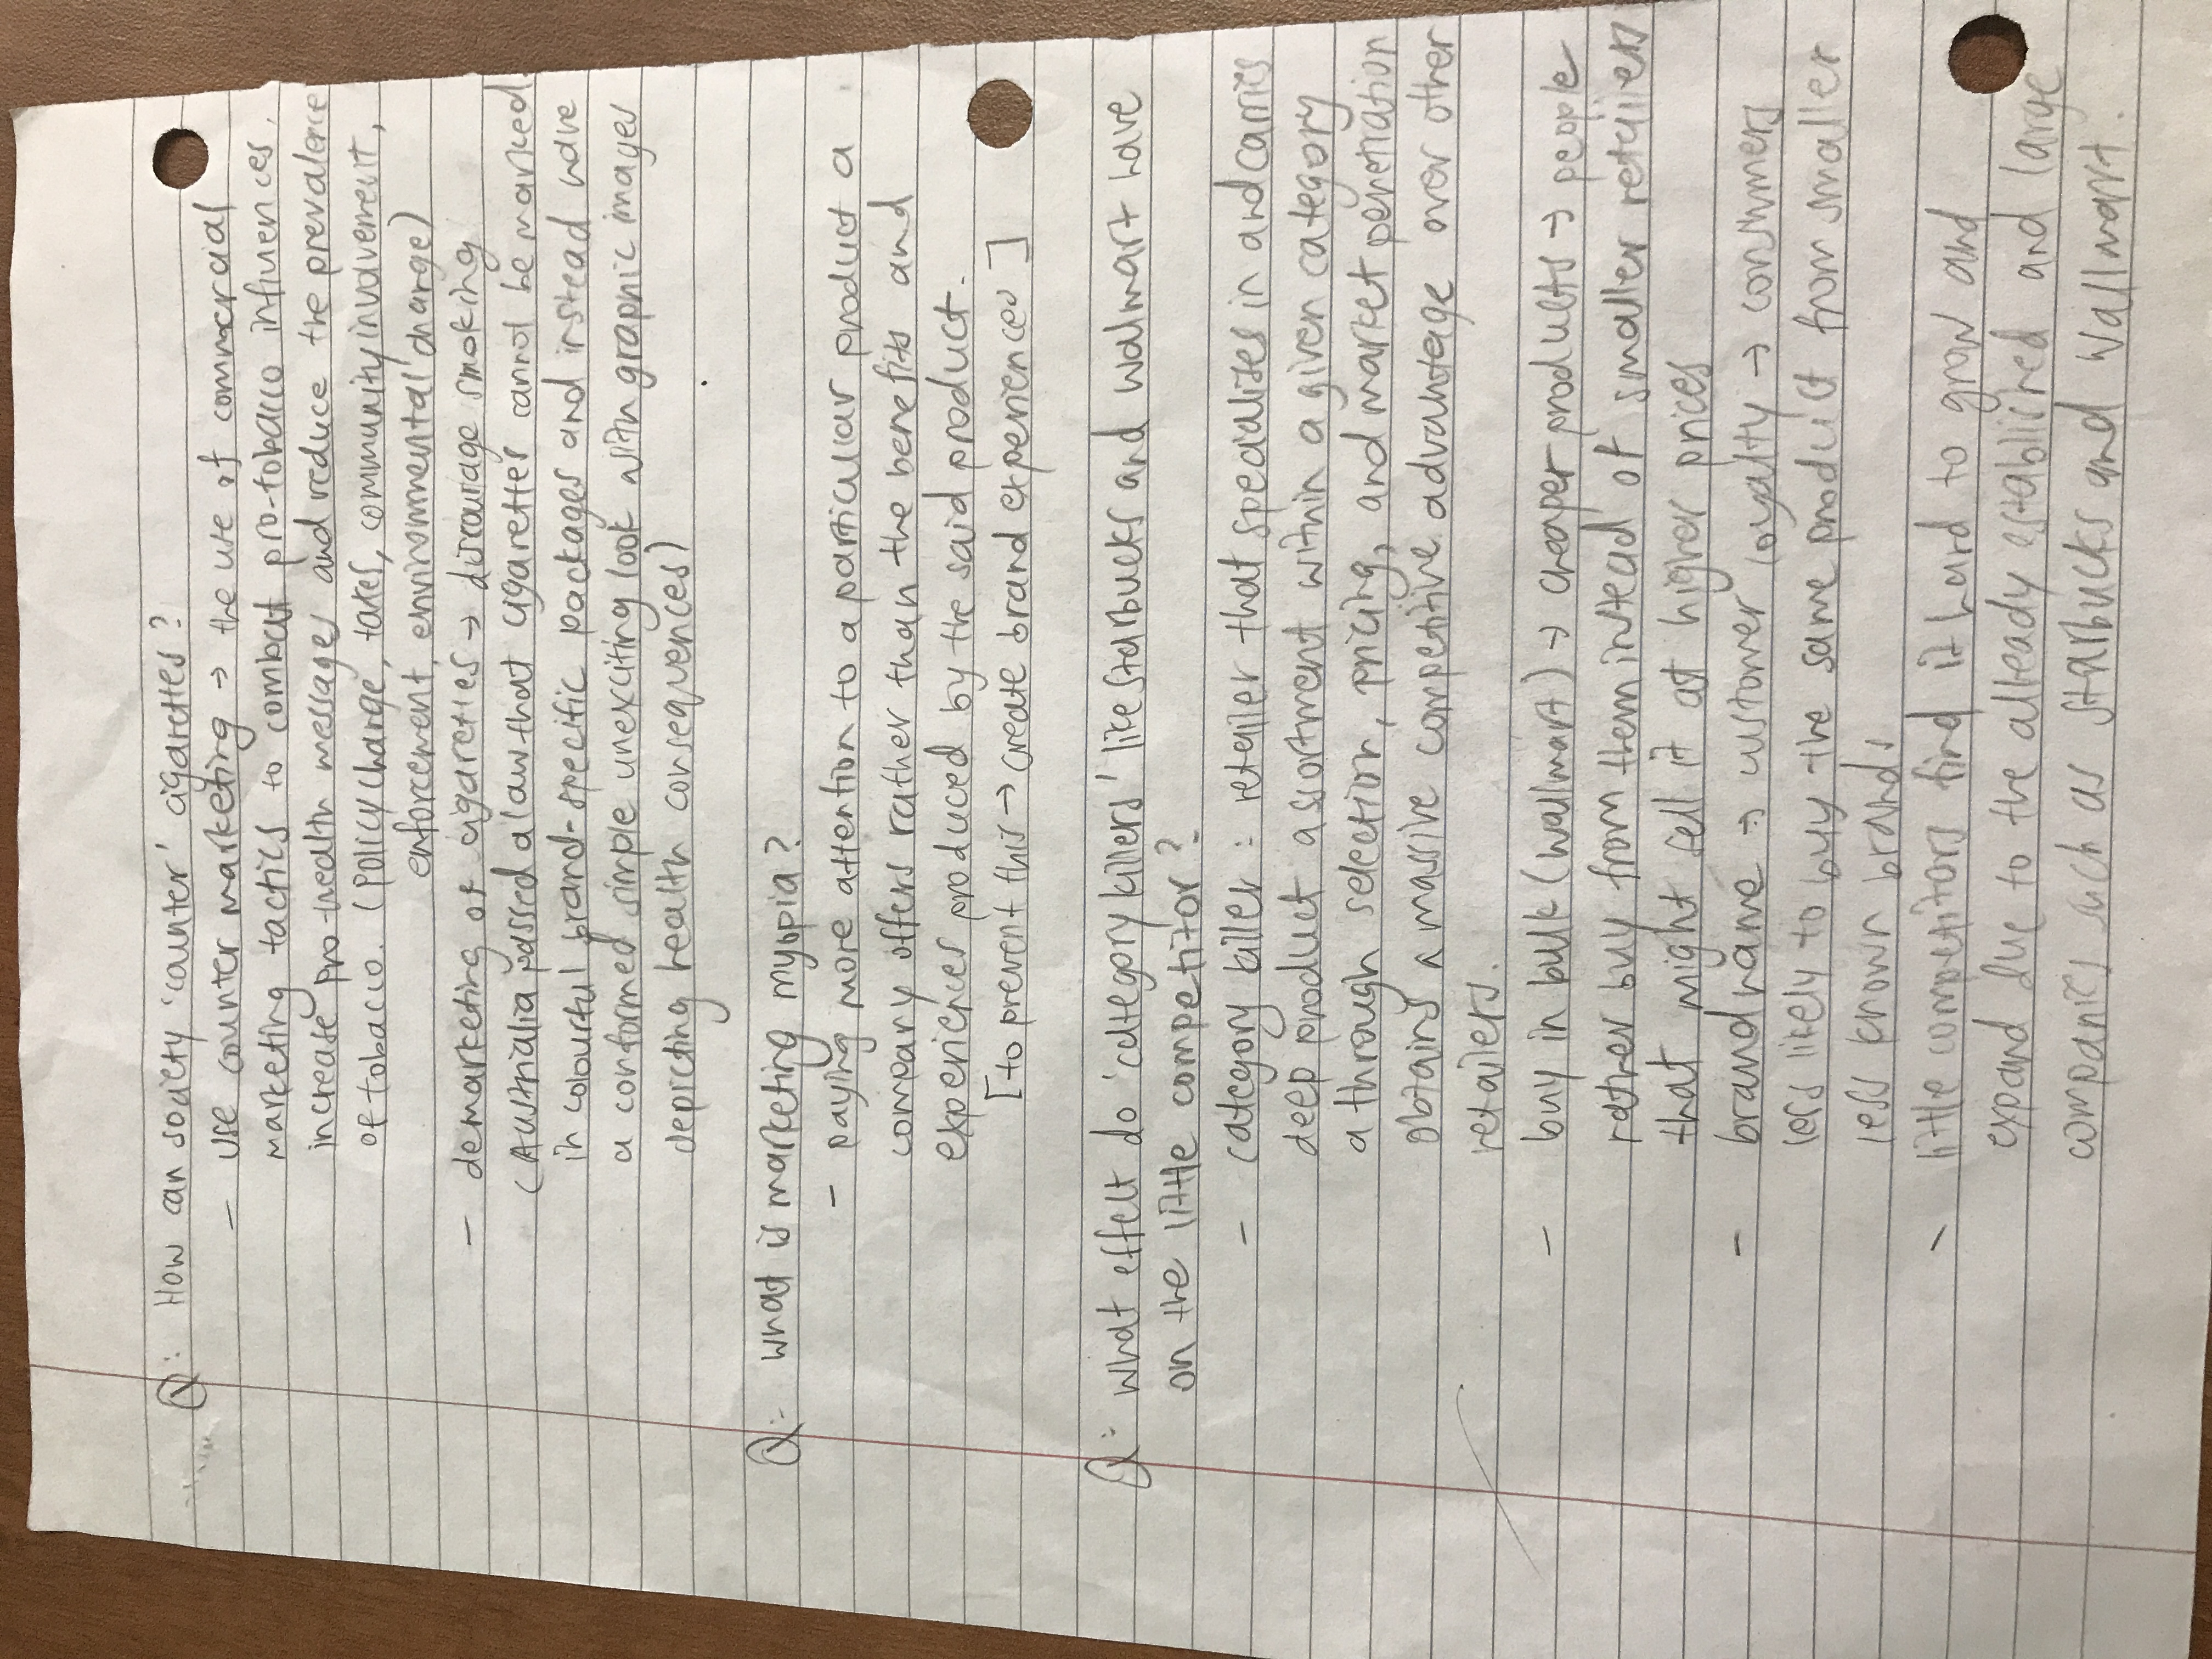 Q: How can society 'counter' cigarettes?
- use counter marketing → the use of commercial
marketing tactics to combat pro-tobacco influences,
increase pro-health messages and reduce the prevalence
of tobacco. (policy change, taxes, community involvement,
enforcement, environmental change)
- demarketing of cigarettes → discourage smoking
(Australia passed a law that cigarettes cannot be marked
in colourful brand-specific packages and instead have
a conformed simple unexciting look with graphic images
depicting health consequences)
Q: what is marketing myopia?
- paying more attention to a particular product a
company offers rather than the benefits and
experiences produced by the said product.
[to prevent this → create brand experiences]
Q: what effect do 'category killers' like starbucks and walmart have
on the little competitor?
- category killer: retailer that specializes in and carries
deep product assortment within a given category
a through selection, pricing, and market penetration
obtains a massive competitive advantage over other
retailers.
- buy in bulk (wallmart) → cheaper products → people
rather buy from them instead of smaller retailers
that might sell it at higher prices
- brand name → customer loyalty → consumers
less likely to buy the same product from smaller
less known brands
- little competitors find it hard to grow and
expand due to the allready established and large
companies such as starbucks and wallmart.